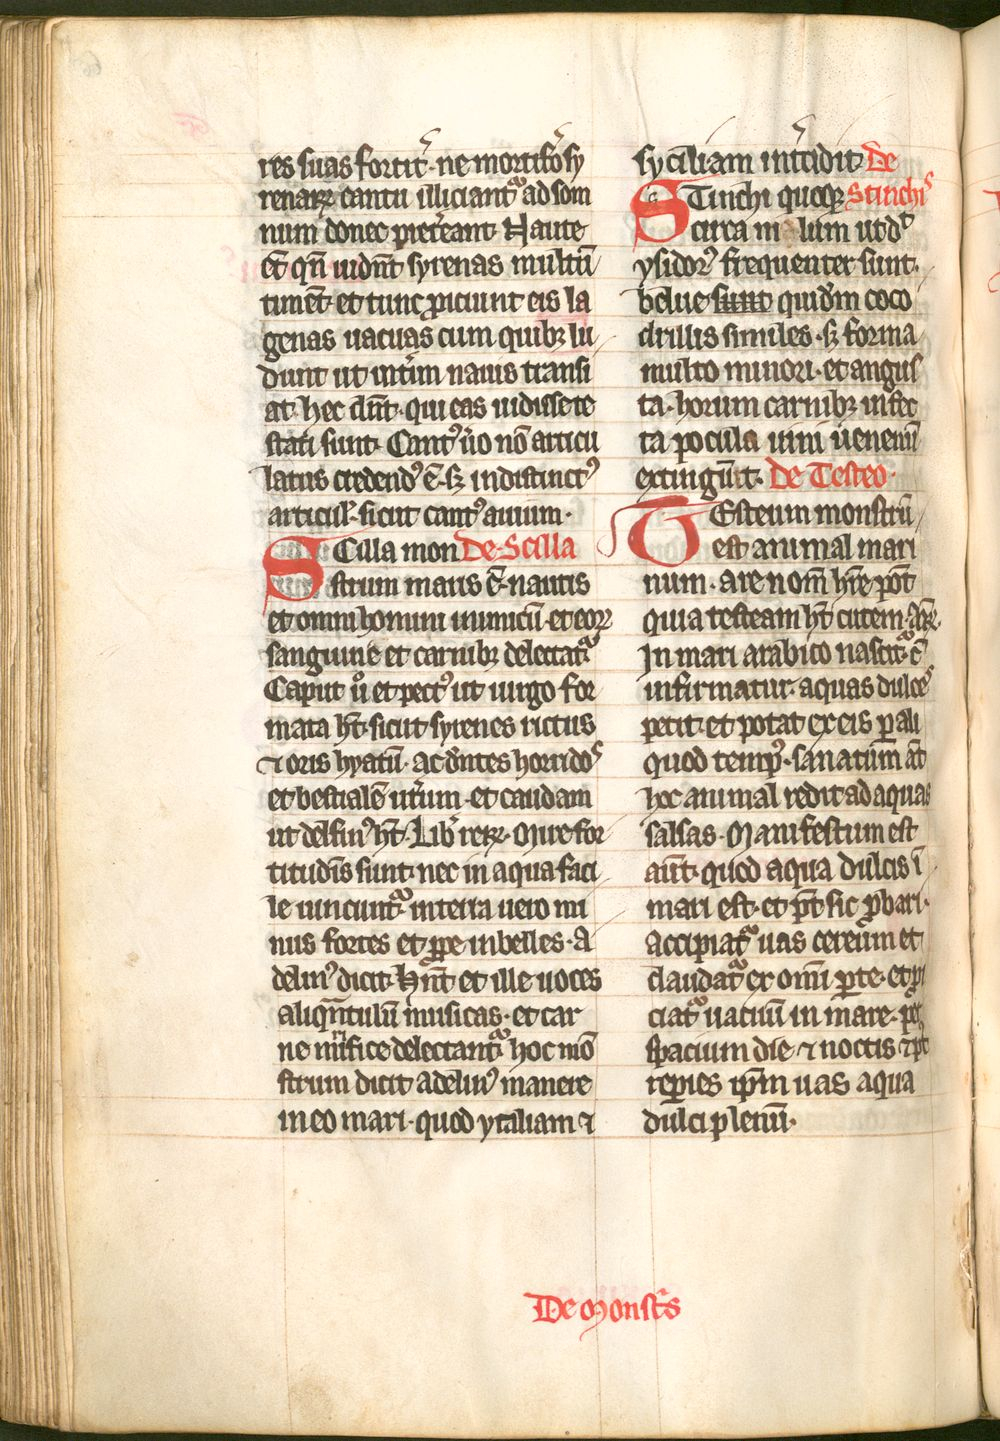 res suas fortit᷑ · ne mortifōs sy
renaꝝ cantu illiciant᷑ ad som
num donec p̄tereant · Naute
et̄ qn̄ uidn̄t syrenas multū
timēt · et tunc ꝓiciunt eis la
genas uacuas cum quibꝫ lu
dunt ut int̄im nauis transi
at · hec dn̄t · qui eas uidisse te
stati sunt · Cantꝰ u̇o nō articu
latus credendꝰ ē · sꝫ indistinctꝰ
articul̄ · sicut cantꝰ auium ·
SCilla mon De Scilla
strum maris ē · nautis
et omni homini inimicū · et eoꝝ
sanguine et carnibꝫ delectat᷑
Caput u̇o et pectꝰ ut uirgo for
mata hꝫ · sicut syrenes rictus
⁊ oris hyatū · ac dentes horridoˢ
et bestialē ut̄um · et caudam
ut delfinꝰ hꝫ · Lib̄ reꝝ · Mire for
titudīs sunt · nec in aqua faci
le uincunt᷑ · in terra uero mi
nus fortes et ꝓpe inbelles · A
delinꝰ dicit · Hn̄t et ille uoces
aliqn̄tulū musicas · et car
ne mi̇ifice delectant᷑ · hoc mō
strum dicit Adelinꝰ manere
in eo mari · quod ytaliam ⁊
syciliam int̄cidit · De
STinchi quoqꝫ Stinchiˢ
circa nilum ut d͛
ysidorꝰ frequenter sunt ·
belue sunt quid̄m coco
drillis similes · sꝫ forma
multo minori · et angus
ta · horum carnibꝫ infec
ta pocula uini uenenū
extingūt · De Testeo ·
TEsteum monstrū
est animal mari
num · a re nom̄ h̄re pōt
quia testeam hꝫ cutem · Ar̄
In mari arabico nascit᷑ · cū
infirmatur · aquas dulceˢ
petit · et potat ex eis p̲ ali
quod tempꝰ · sanatum at̄
hoc animal redit ad aquas
salsas · Manifestum est
aut̄ · quod aqua dulcis ī
mari est · et pōt sic ꝓbari ·
Accipiat᷑ uas cereum et
claudat᷑ ex omī p̲te · et ꝓi
ciat᷑ uacuū in mare · p̲
spacium diei ⁊ noctis
rep̲ies ip̄m uas aqua
dulci plenū ·
De Monst̄s